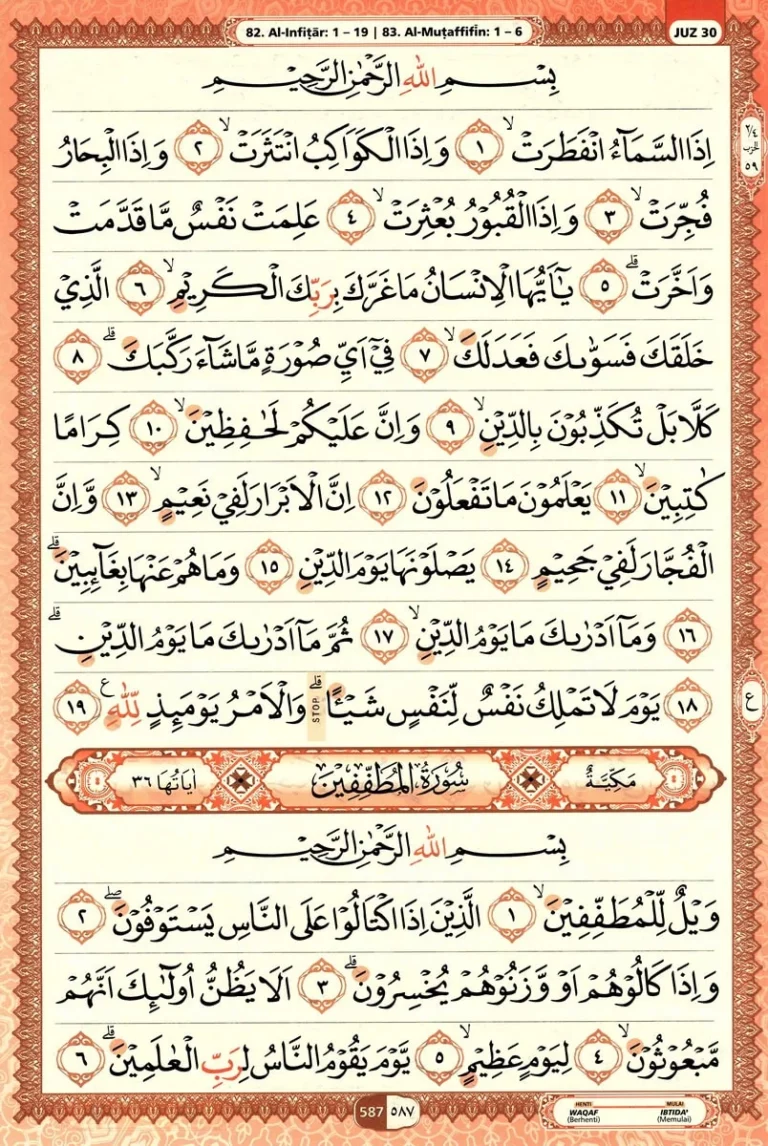 82. Al-Infiṭār: 1 – 19 | 83. Al-Muṭaffifīn: 1 – 6
JUZ 30
بِسْمِ اللّٰهِ الرَّحْمٰنِ الرَّحِيْمِ
اِذَا السَّمَاۤءُ انْفَطَرَتْۙ ١ وَاِذَا الْكَوَاكِبُ انْتَثَرَتْۙ ٢ وَاِذَا الْبِحَارُ
فُجِّرَتْۙ ٣ وَاِذَا الْقُبُوْرُ بُعْثِرَتْۙ ٤ عَلِمَتْ نَفْسٌ مَّا قَدَّمَتْ
وَاَخَّرَتْۗ ٥ يٰٓاَيُّهَا الْاِنْسَانُ مَا غَرَّكَ بِرَبِّكَ الْكَرِيْمِۙ ٦ الَّذِيْ
خَلَقَكَ فَسَوّٰىكَ فَعَدَلَكَۙ ٧ فِيْٓ اَيِّ صُوْرَةٍ مَّا شَاۤءَ رَكَّبَكَۗ ٨
كَلَّا بَلْ تُكَذِّبُوْنَ بِالدِّيْنِۙ ٩ وَاِنَّ عَلَيْكُمْ لَحٰفِظِيْنَۙ ١٠ كِرَامًا
كٰتِبِيْنَۙ ١١ يَعْلَمُوْنَ مَا تَفْعَلُوْنَ ١٢ اِنَّ الْاَبْرَارَ لَفِيْ نَعِيْمٍۙ ١٣ وَّاِنَّ
الْفُجَّارَ لَفِيْ جَحِيْمٍ ١٤ يَصْلَوْنَهَا يَوْمَ الدِّيْنِ ١٥ وَمَا هُمْ عَنْهَا بِغَاۤىِٕبِيْنَۗ
١٦ وَمَآ اَدْرٰىكَ مَا يَوْمُ الدِّيْنِۙ ١٧ ثُمَّ مَآ اَدْرٰىكَ مَا يَوْمُ الدِّيْنِۗ
١٨ يَوْمَ لَا تَمْلِكُ نَفْسٌ لِّنَفْسٍ شَيْـًٔاۗ STOP وَالْاَمْرُ يَوْمَىِٕذٍ لِّلّٰهِ ࣖ ١٩
مَكِّيَّةٌ سُوْرَةُ الْمُطَفِّفِيْنَ اٰيَاتُهَا ٣٦
بِسْمِ اللّٰهِ الرَّحْمٰنِ الرَّحِيْمِ
وَيْلٌ لِّلْمُطَفِّفِيْنَۙ ١ الَّذِيْنَ اِذَا اكْتَالُوْا عَلَى النَّاسِ يَسْتَوْفُوْنَۖ ٢
وَاِذَا كَالُوْهُمْ اَوْ وَّزَنُوْهُمْ يُخْسِرُوْنَۗ ٣ اَلَا يَظُنُّ اُولٰۤىِٕكَ اَنَّهُمْ
مَّبْعُوْثُوْنَۙ ٤ لِيَوْمٍ عَظِيْمٍۙ ٥ يَّوْمَ يَقُوْمُ النَّاسُ لِرَبِّ الْعٰلَمِيْنَۗ ٦
٢/٤ الحزب ٥٩
ع
587 ٥٨٧
HENTI WAQAF (Berhenti)
MULAI IBTIDA' (Memulai)